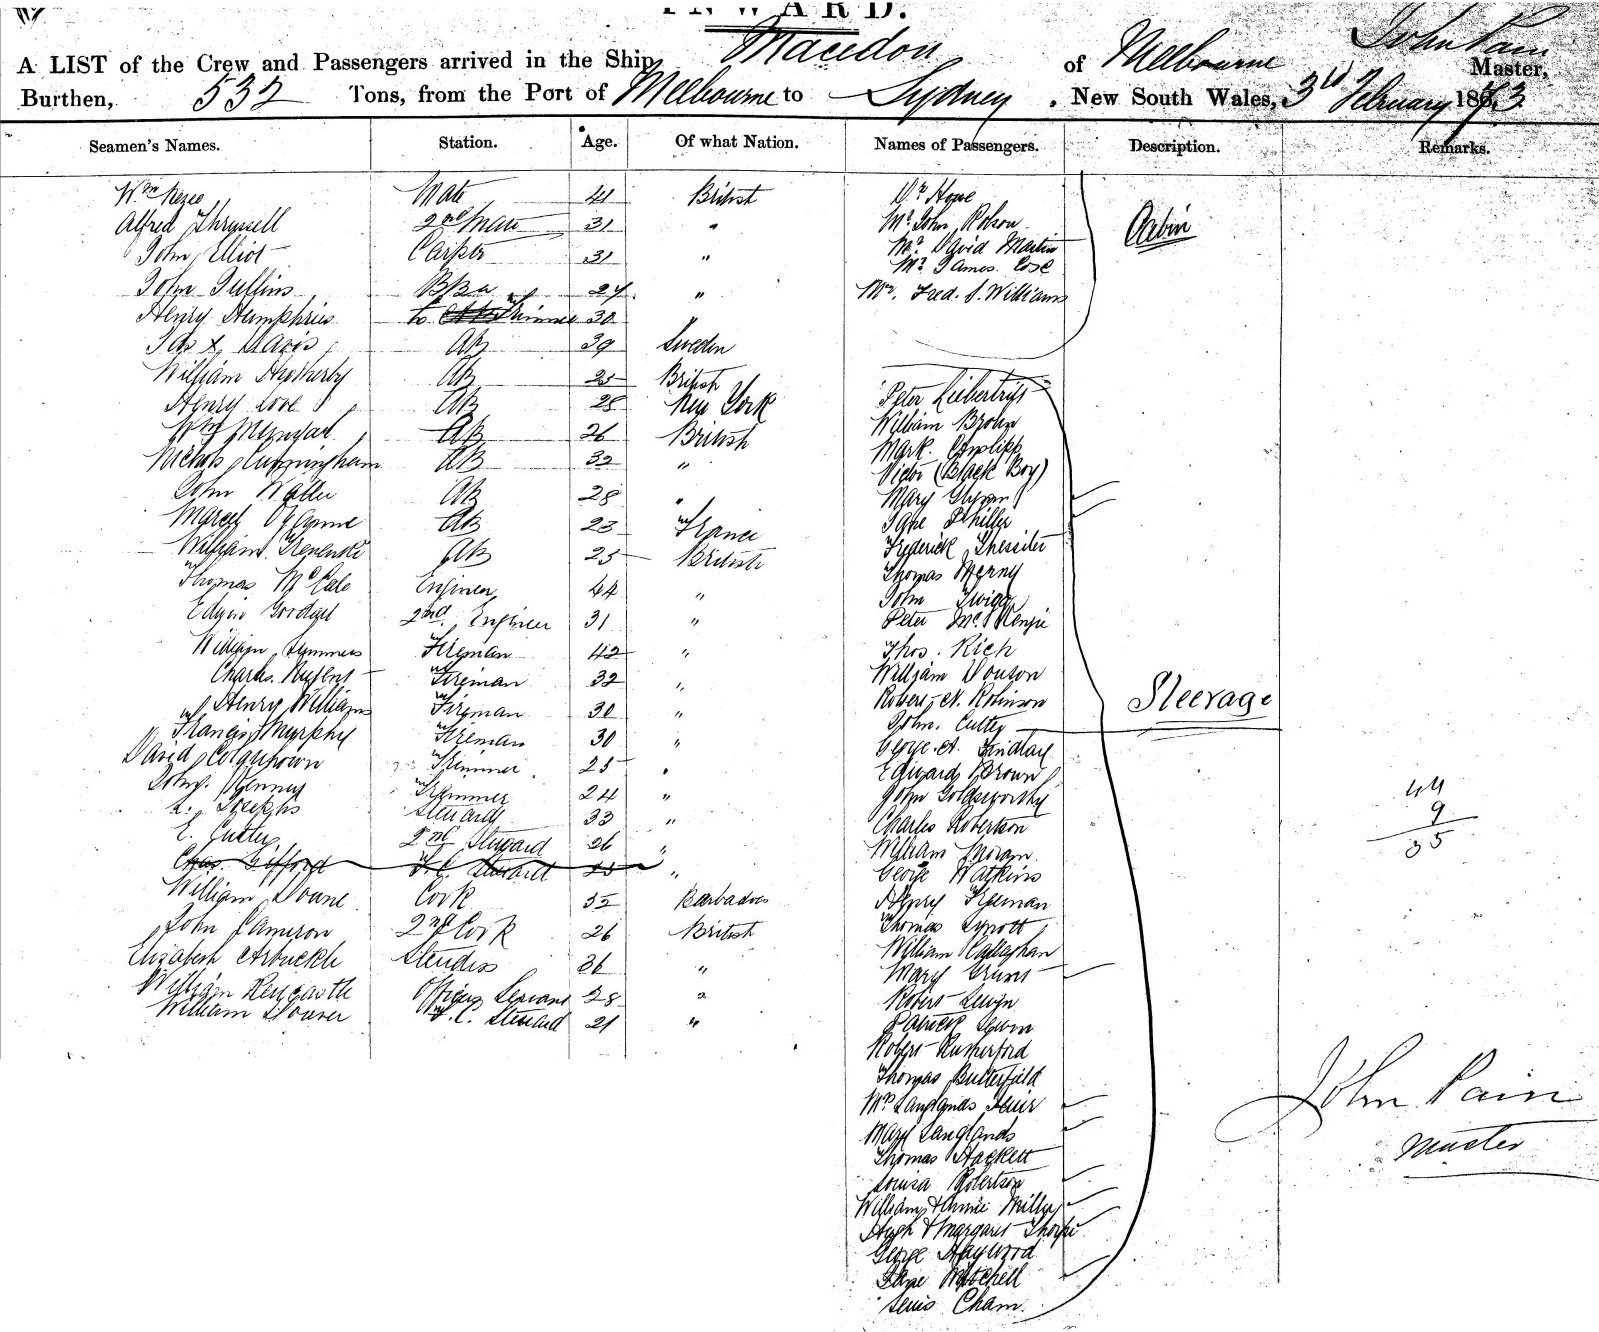 INWARD.
A LIST of the Crew and Passengers arrived in the Ship Macedon of Melbourne John Pain Master,
Burthen, 532 Tons, from the Port of Melbourne to Sydney, New South Wales, 3rd February 1873
Seamen's Names. Station. Age. Of what Nation. Names of Passengers. Description. Remarks.
Wm Mate 41 British
Alfred Thryssell 2nd Mate 31 "
John Elliot Carpter 31 "
John Jullins 27 "
Henry Humphries Trimmer 30 "
AB 39 Sweden
William AB 25 British
Henry Love AB 28 New York
Wm AB 26 British
Nichols Cunningham AB 32 "
John Waller AB 28 "
AB 23 France
William AB 25 British
Thomas McCale Engineer 44 "
Edwin 2nd Engineer 31 "
William Symmers Fireman 42 "
Charles Fireman 32 "
Henry Williams Fireman 30 "
Francis Murphy Fireman 30 "
David Colquhoun Trimmer 25 "
John Kenney Trimmer 24 "
L. Josephs Steward 33 "
E. Cutler 2nd Steward 26 "
Chas. Gifford F.C. Steward 25 "
William Doane Cook 35 Barbadoes
John Cameron 2nd Cook 26 British
Elizabeth Arbuckle Stewdiss 36 "
William Hencastle Officers Servant 28 "
William Dower F.C. Steward 21 "
Dr Hope
Mr John Robson
Mr David Martin
Mr James Cose
Mr. Fred. S. Williams
Cabin
Peter
William Brown
Mark
Victor (Black Boy)
Mary Glynn
Jane Phillip
Frederick Thessiter
Thomas Merny
John Twigg
Peter McKenzie
Thos. Rich
William Douson
Robert A. Robinson
John. Cutter
George A. Findlay
Edward Brown
John Goldsworthy
Charles Robertson
William Moran
George Watkins
Henry Freeman
Thomas Lynott
William Callaghan
Mary Gruns
Robert Lewin
Patrick Lewin
Robert Rutherford
Thomas Butterfield
Mrs Langlands
Mary Langlands
Thomas Hackett
Louisa Robertson
William & Annie Miller
Hugh & Margaret Thorpe
George Haywood
Jane Mitchell
Lewis Cham.
Steerage
44
9
35
John Pain
Master